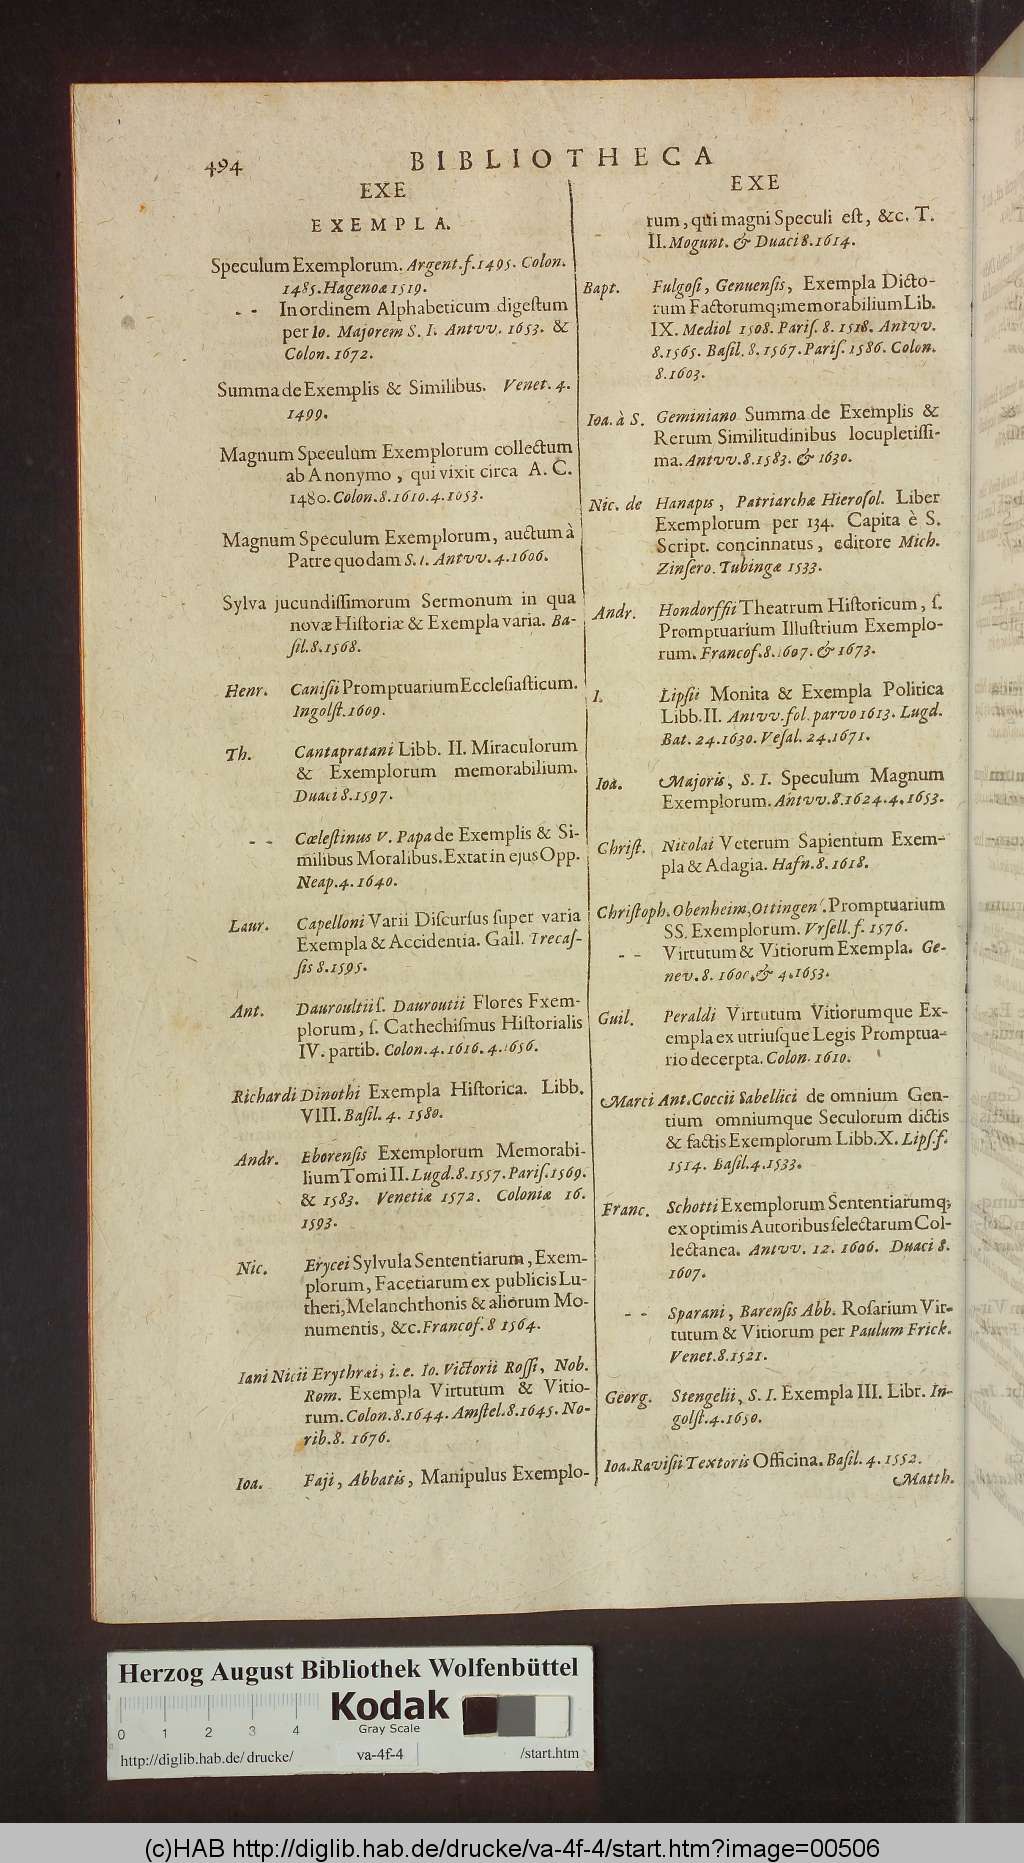 494
BIBLIOTHECA
EXE
EXEMPLA.
Speculum Exemplorum. Argent. f. 1495. Colon.
1485. Hagenoæ 1519.
- - In ordinem Alphabeticum digeſtum
per Io. Majorem S. I. Antvv. 1653. &
Colon. 1672.
Summa de Exemplis & Similibus. Venet. 4.
1499.
Magnum Speculum Exemplorum collectum
ab Anonymo, qui vixit circa A. C.
1480. Colon. 8. 1610. 4. 1653.
Magnum Speculum Exemplorum, auctum à
Patre quodam S. I. Antvv. 4. 1606.
Sylva jucundiſſimorum Sermonum in qua
novæ Hiſtoriæ & Exempla varia. Ba-
ſil. 8. 1568.
Henr. Caniſii Promptuarium Eccleſiaſticum.
Ingolſt. 1609.
Th. Cantapratani Libb. II. Miraculorum
& Exemplorum memorabilium.
Duaci 8. 1597.
- - Cœleſtinus V. Papa de Exemplis & Si-
milibus Moralibus. Extat in ejus Opp.
Neap. 4. 1640.
Laur. Capelloni Varii Diſcurſus ſuper varia
Exempla & Accidentia. Gall. Trecaſ-
ſis 8. 1595.
Ant. Dauroultii ſ. Dauroutii Flores Exem-
plorum, ſ. Cathechiſmus Hiſtorialis
IV. partib. Colon. 4. 1616. 4. 1656.
Richardi Dinothi Exempla Hiſtorica. Libb.
VIII. Baſil. 4. 1580.
Andr. Eborenſis Exemplorum Memorabi-
lium Tomi II. Lugd. 8. 1557. Pariſ. 1569.
& 1583. Venetiæ 1572. Coloniæ 16.
1593.
Nic. Erycei Sylvula Sententiarum, Exem-
plorum, Facetiarum ex publicis Lu-
theri, Melanchthonis & aliorum Mo-
numentis, &c. Francof. 8 1564.
Iani Nicii Erythræi, i. e. Io. Victorii Roſſi, Nob.
Rom. Exempla Virtutum & Vitio-
rum. Colon. 8. 1644. Amſtel. 8. 1645. No-
rib. 8. 1676.
Ioa. Faji, Abbatis, Manipulus Exemplo-
EXE
rum, qui magni Speculi eſt, &c. T.
II. Mogunt. & Duaci 8. 1614.
Bapt. Fulgoſi, Genuenſis, Exempla Dicto-
rum Factorumq; memorabilium Lib.
IX. Mediol 1508. Pariſ. 8. 1518. Antvv.
8. 1565. Baſil. 8. 1567. Pariſ. 1586. Colon.
8. 1603.
Ioa. à S. Geminiano Summa de Exemplis &
Rerum Similitudinibus locupletiſſi-
ma. Antvv. 8. 1583. & 1630.
Nic. de Hanapis, Patriarchæ Hieroſol. Liber
Exemplorum per 134. Capita è S.
Script. concinnatus, editore Mich.
Zinſero. Tubingæ 1533.
Andr. Hondorffii Theatrum Hiſtoricum, ſ.
Promptuarium Illuſtrium Exemplo-
rum. Francof. 8. 1607. & 1673.
I. Lipſii Monita & Exempla Politica
Libb. II. Antvv. fol. parvo 1613. Lugd.
Bat. 24. 1630. Veſal. 24. 1671.
Ioa. Majoris, S. I. Speculum Magnum
Exemplorum. Antvv. 8. 1624. 4. 1653.
Chriſt. Nicolai Veterum Sapientum Exem-
pla & Adagia. Hafn. 8. 1618.
Chriſtoph. Obenheim, Ottingenſ. Promptuarium
SS. Exemplorum. Vrſell. f. 1576.
- - Virtutum & Vitiorum Exempla. Ge-
nev. 8. & 4. 1653.
Guil. Peraldi Virtutum Vitiorumque Ex-
empla ex utriuſque Legis Promptua-
rio decerpta. Colon. 1610.
Marci Ant. Coccii Sabellici de omnium Gen-
tium omniumque Seculorum dictis
& factis Exemplorum Libb. X. Lipſ. f.
1514. Baſil. 4. 1533.
Franc. Schotti Exemplorum Sententiarumq;
ex optimis Autoribus ſelectarum Col-
lectanea. Antvv. 12. 1606. Duaci 8.
1607.
- - Sparani, Barenſis Abb. Roſarium Vir-
tutum & Vitiorum per Paulum Frick.
Venet. 8. 1521.
Georg. Stengelii, S. I. Exempla III. Libr. In-
golſt. 4. 1650.
Ioa. Raviſii Textoris Officina. Baſil. 4. 1552.
Matth.
Herzog August Bibliothek Wolfenbüttel
0 1 2 3 4
Kodak
Gray Scale
http://diglib.hab.de/drucke/ va-4f-4 /start.htm
(c)HAB http://diglib.hab.de/drucke/va-4f-4/start.htm?image=00506